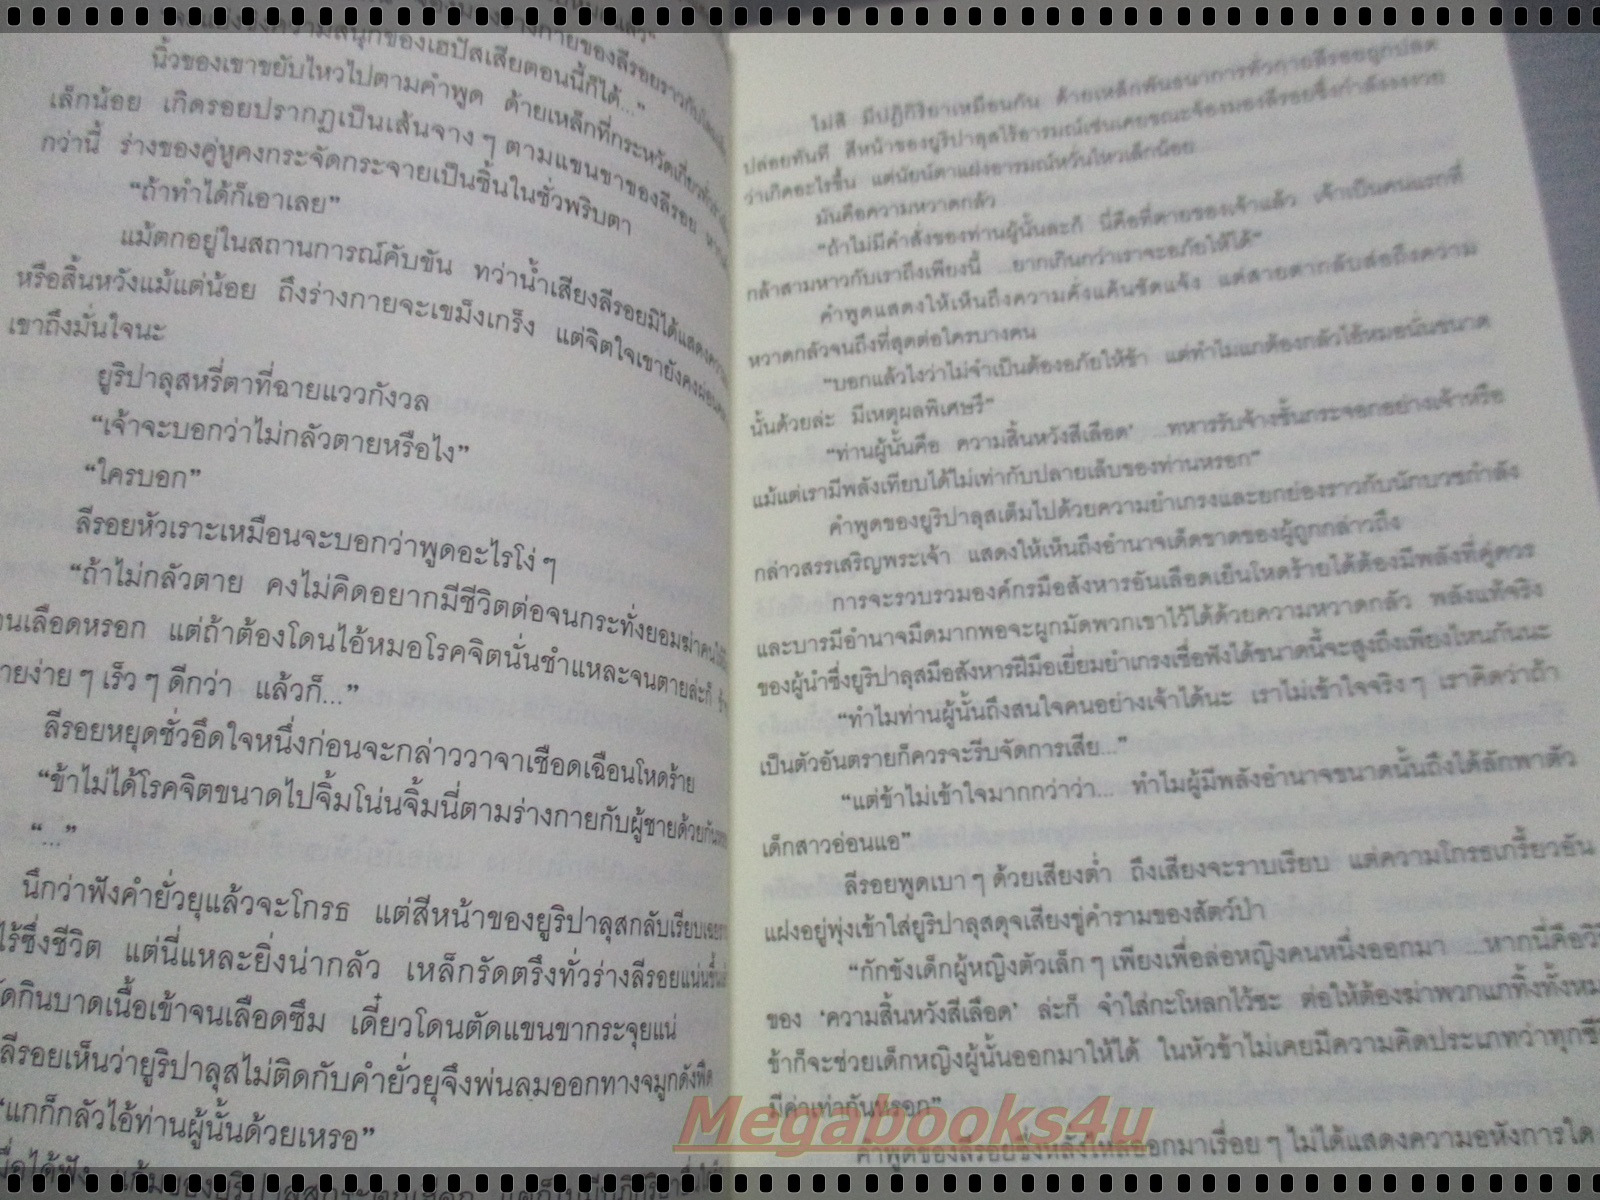 แสดงความสนุกของเฮปัสเสียตอนนี้ก็ได้..."
นิ้วของเขาขยับไหวไปตามคำพูด ด้ายเหล็กที่กระหวัดเกี่ยว
เล็กน้อย เกิดรอยปรากฏเป็นเส้นจางๆ ตามแขนขาของลีรอย
กว่านี้ ร่างของคู่หูคงกระจัดกระจายเป็นชิ้นในชั่วพริบตา
"ถ้าทำได้ก็เอาเลย"
แม้ตกอยู่ในสถานการณ์คับขัน ทว่าน้ำเสียงลีรอยมิได้แสดงความ
หรือสิ้นหวังแม้แต่น้อย ถึงร่างกายจะเขม็งเกร็ง แต่จิตใจเขายังคง
เขาถึงมั่นใจนะ
ยูริปาลุสหรี่ตาที่ฉายแววกังวล
"เจ้าจะบอกว่าไม่กลัวตายหรือไง"
"ใครบอก"
ลีรอยหัวเราะเหมือนจะบอกว่าพูดอะไรโง่ๆ
"ถ้าไม่กลัวตาย คงไม่คิดอยากมีชีวิตต่อจนกระทั่งยอมฆ่าคน
เลือดหรอก แต่ถ้าต้องโดนไอ้หมอโรคจิตนั่นชำแหละจนตายล่ะก็
ง่ายๆ เร็วๆ ดีกว่า แล้วก็..."
ลีรอยหยุดชั่วอึดใจหนึ่งก่อนจะกล่าววาจาเชือดเฉือนโหดร้าย
"ข้าไม่ได้โรคจิตขนาดไปจิ้มโน่นจิ้มนี่ตามร่างกายกับผู้ชายด้วยกัน
"..."
นึกว่าฟังคำยั่วยุแล้วจะโกรธ แต่สีหน้าของยูริปาลุสกลับเรียบเฉย
ไร้ซึ่งชีวิต แต่นี่แหละยิ่งน่ากลัว เหล็กรัดตรึงทั่วร่างลีรอยแน่นขึ้น
กินบาดเนื้อเข้าจนเลือดซึม เดี๋ยวโดนตัดแขนขากระจุยแน่
ลีรอยเห็นว่ายูริปาลุสไม่ติดกับคำยั่วยุจึงพ่นลมออกทางจมูกดังพืด
"แกก็กลัวไอ้ท่านผู้นั้นด้วยเหรอ"
ไม่สิ มีปฏิกิริยาเหมือนกัน ด้ายเหล็กพันธนาการทั่วกายลีรอยถูกปลด
ปล่อยทันที สีหน้าของยูริปาลุสไร้อารมณ์เช่นเคยขณะจ้องมองลีรอยซึ่งกำลังงงงวย
ว่าเกิดอะไรขึ้น แต่นัยน์ตาแฝงอารมณ์หวั่นไหวเล็กน้อย
มันคือความหวาดกลัว
"ถ้าไม่มีคำสั่งของท่านผู้นั้นละก็ นี่คือที่ตายของเจ้าแล้ว เจ้าเป็นคนแรกที่
กล้าสามหาวกับเราถึงเพียงนี้ ...ยากเกินกว่าเราจะอภัยให้ได้"
คำพูดแสดงให้เห็นถึงความคั่งแค้นชัดแจ้ง แต่สายตากลับส่อถึงความ
หวาดกลัวจนถึงที่สุดต่อใครบางคน
"บอกแล้วไงว่าไม่จำเป็นต้องอภัยให้ข้า แต่ทำไมแกต้องกลัวไอ้หมอนั่นขนาด
นั้นด้วยล่ะ มีเหตุผลพิเศษรึ"
"ท่านผู้นั้นคือ 'ความสิ้นหวังสีเลือด' ...ทหารรับจ้างชั้นกระจอกอย่างเจ้าหรือ
แม้แต่เรามีพลังเทียบได้ไม่เท่ากับปลายเล็บของท่านหรอก"
คำพูดของยูริปาลุสเต็มไปด้วยความยำเกรงและยกย่องราวกับนักบวชกำลัง
กล่าวสรรเสริญพระเจ้า แสดงให้เห็นถึงอำนาจเด็ดขาดของผู้ถูกกล่าวถึง
การจะรวบรวมองค์กรมือสังหารอันเลือดเย็นโหดร้ายได้ต้องมีพลังที่คู่ควร
และบารมีอำนาจมืดมากพอจะผูกมัดพวกเขาไว้ได้ด้วยความหวาดกลัว พลังแท้จริง
ของผู้นำซึ่งยูริปาลุสมือสังหารฝีมือเยี่ยมยำเกรงเชื่อฟังได้ขนาดนี้จะสูงถึงเพียงไหนกันนะ
"ทำไมท่านผู้นั้นถึงสนใจคนอย่างเจ้าได้นะ เราไม่เข้าใจจริงๆ เราคิดว่าถ้า
เป็นตัวอันตรายก็ควรจะรีบจัดการเสีย..."
"แต่ข้าไม่เข้าใจมากกว่าว่า... ทำไมผู้มีพลังอำนาจขนาดนั้นถึงได้ลักพาตัว
เด็กสาวอ่อนแอ"
ลีรอยพูดเบาๆ ด้วยเสียงต่ำ ถึงเสียงจะราบเรียบ แต่ความโกรธเกรี้ยวอัน
แฝงอยู่พุ่งเข้าใส่ยูริปาลุสดุจเสียงขู่คำรามของสัตว์ป่า
"กักขังเด็กผู้หญิงตัวเล็กๆ เพียงเพื่อล่อหญิงคนหนึ่งออกมา ...หากนี่คือวิธี
ของ 'ความสิ้นหวังสีเลือด' ล่ะก็ จำใส่กะโหลกไว้ซะ ต่อให้ต้องฆ่าพวกแกทิ้งทั้งหมด
ข้าก็จะช่วยเด็กหญิงผู้นั้นออกมาให้ได้ ในหัวข้าไม่เคยมีความคิดประเภทว่าทุกชีวิต
มีค่าเท่ากันหรอก"
คำพูดของลีรอยซึ่งหลั่งไหลออกมาเรื่อยๆ ไม่ได้แสดงความอหังการใด
Megabooks4u